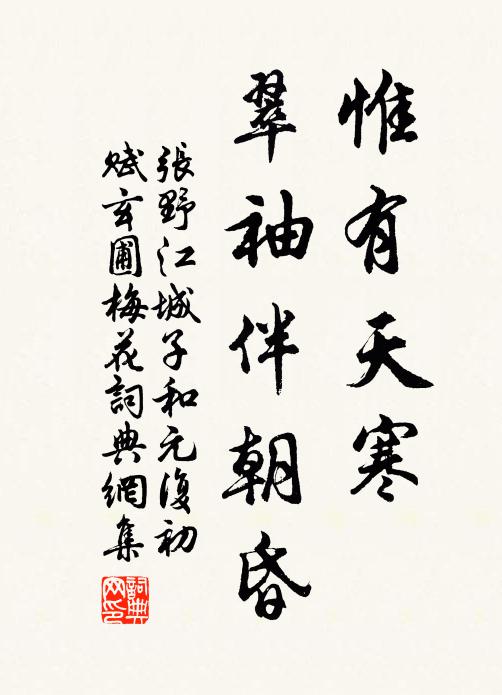 惟有天寒
翠袖伴朝昏
張野江城子和元復初
賦玄圃梅花詞典網集
詞典網印